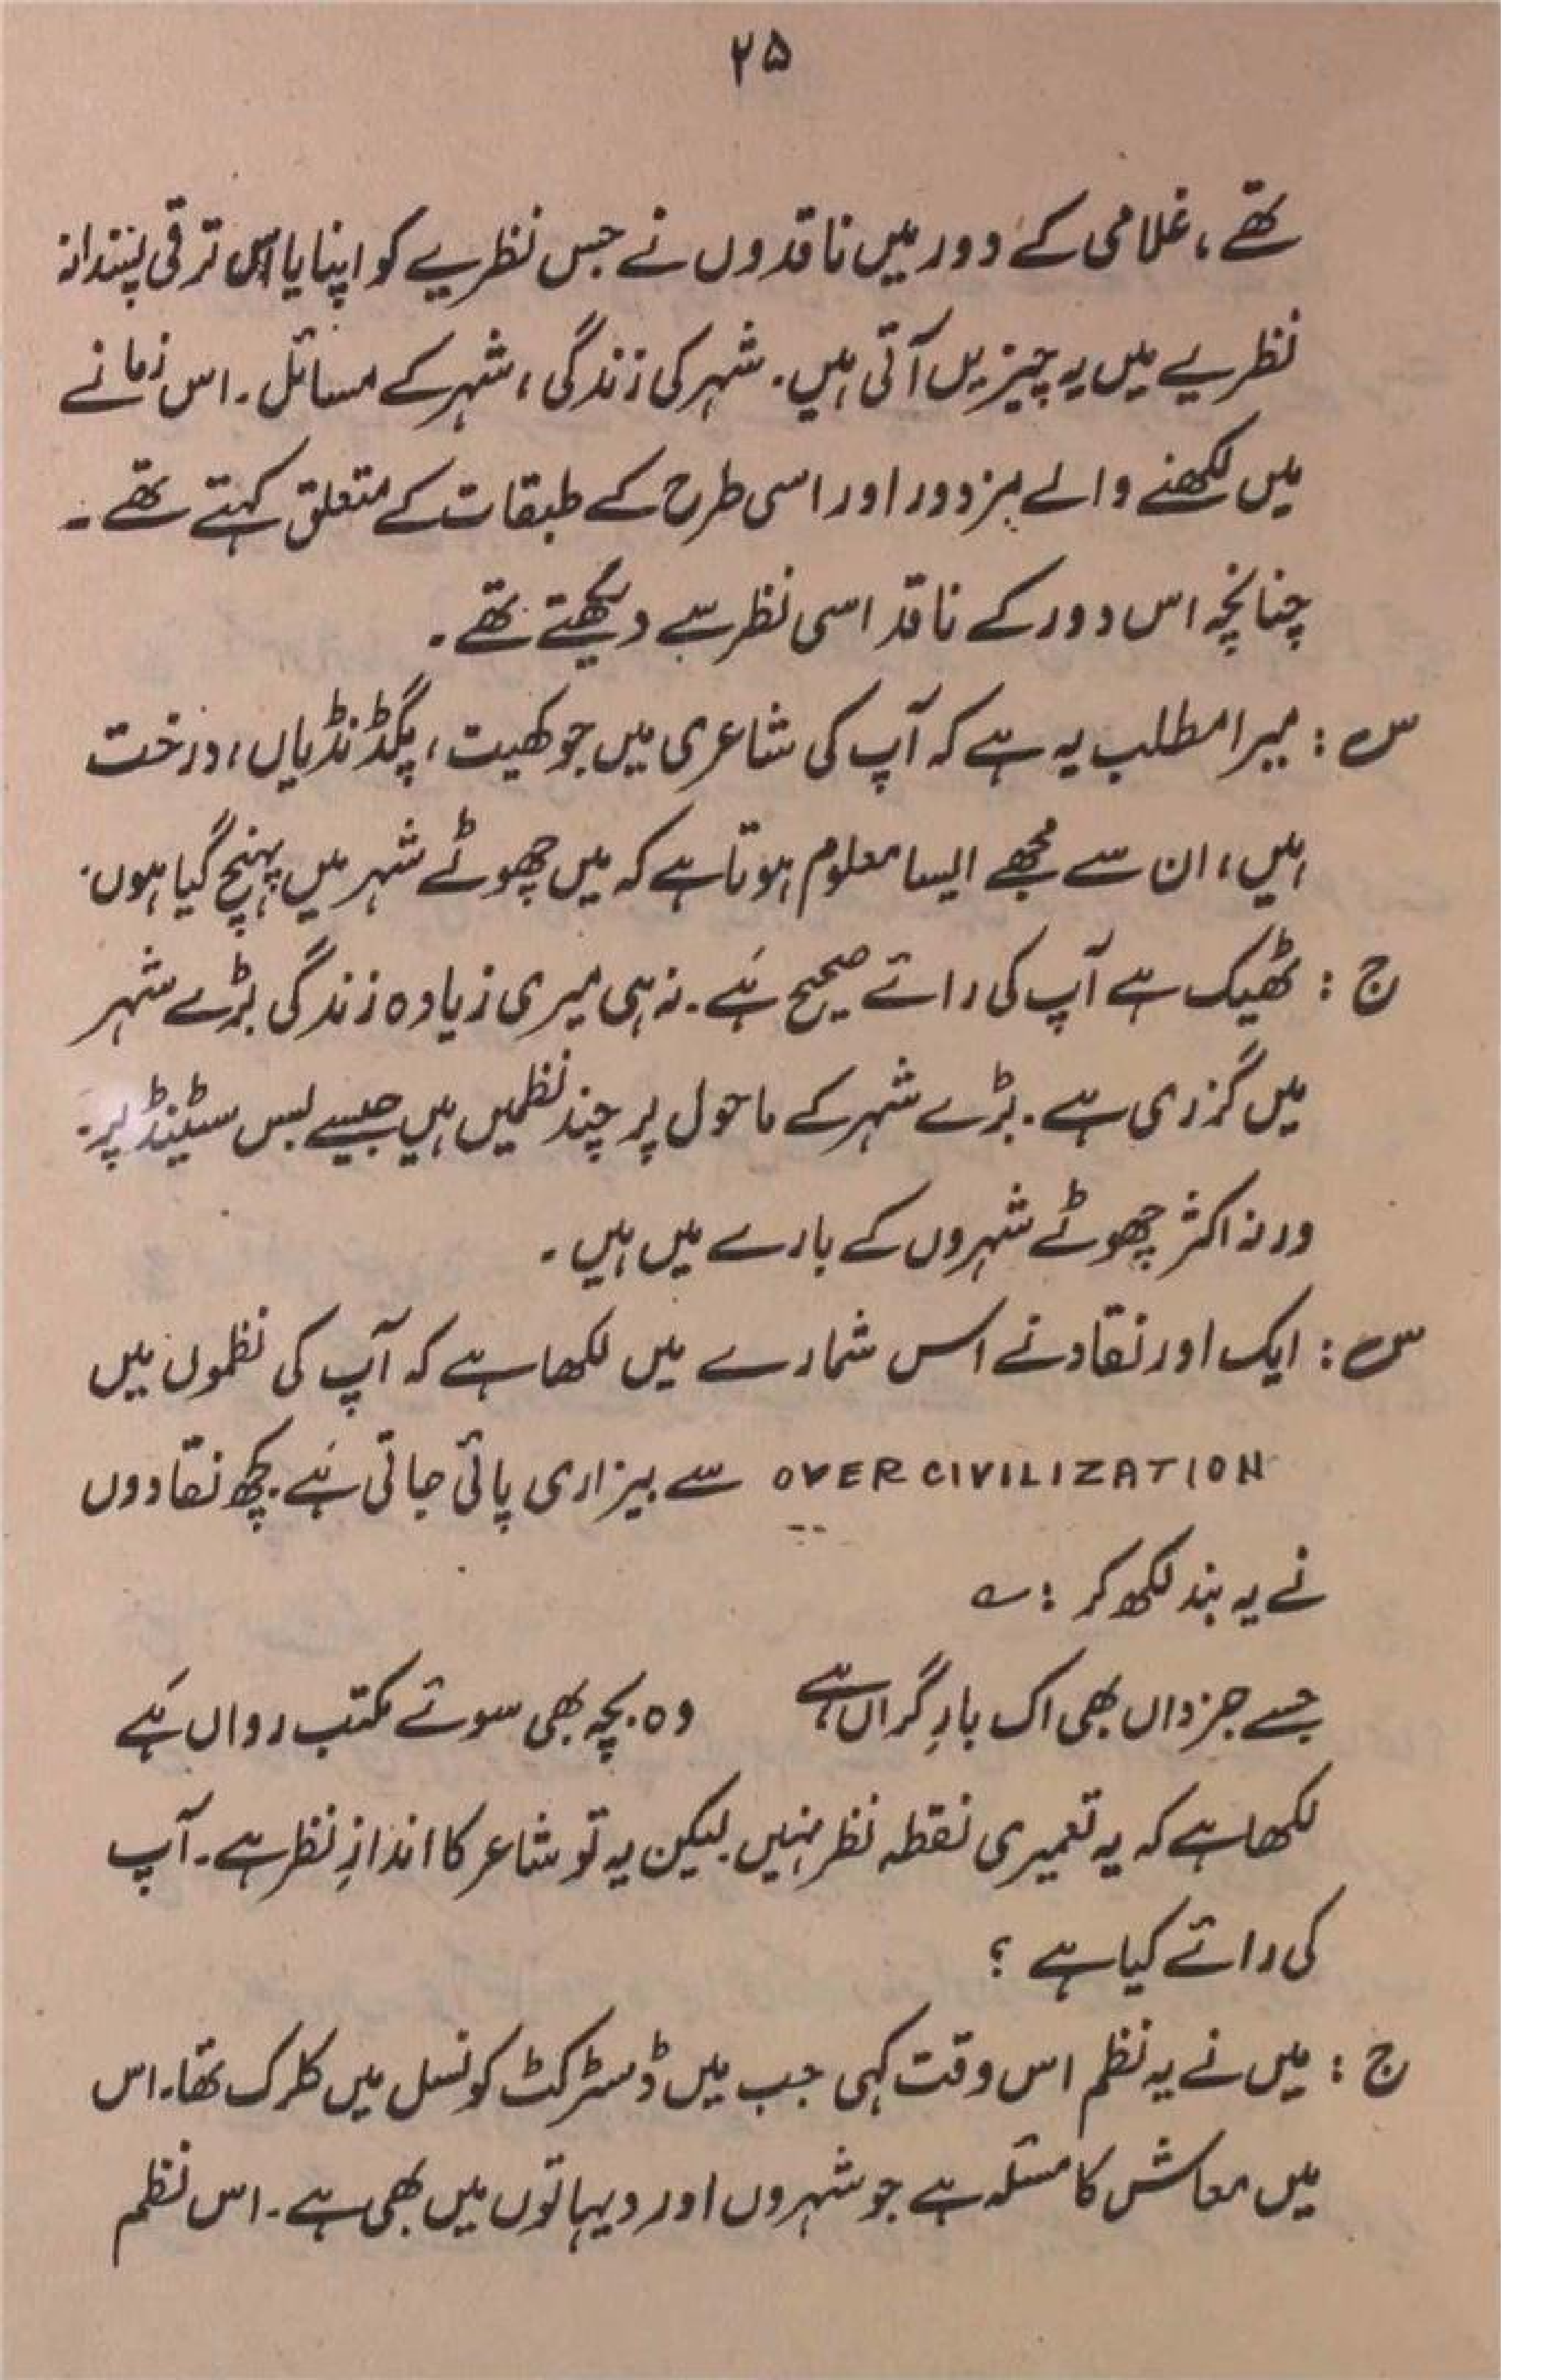 ۲۵
تھے، غلامی کے دور میں ناقدوں نے جس نظریے کو اپنایا اس ترقی پسندانہ
نظریے میں یہ چیزیں آتی ہیں. شہر کی زندگی، شہر کے مسائل۔ اس زمانے
میں لکھنے والے مزدور اور اسی طرح کے طبقات کے متعلق کہتے تھے۔
چنانچہ اس دور کے ناقد اسی نظر سے دیکھتے تھے۔
س : میرا مطلب یہ ہے کہ آپ کی شاعری میں جو کھیت، پگڈنڈیاں، درخت
ہیں، ان سے مجھے ایسا معلوم ہوتا ہے کہ میں چھوٹے شہر میں پہنچ گیا ہوں.
ج : ٹھیک ہے آپ کی رائے صحیح ہَے۔ نہ ہی میری زیادہ زندگی بڑے شہر
میں گزری ہے۔ بڑے شہر کے ماحول پر چند نظمیں ہیں جیسے بس سٹینڈ پر.
ورنہ اکثر چھوٹے شہروں کے بارے میں ہیں۔
س : ایک اور نقاد نے اس شمارے میں لکھا ہے کہ آپ کی نظموں میں
OVER CIVILIZATION سے بیزاری پائی جاتی ہَے۔ کچھ نقادوں
نے یہ بند لکھ کر : ؎
جسے جزداں بھی اک بارِ گراں ہے وہ بچہ بھی سوئے مکتب رواں ہَے
لکھا ہے کہ یہ تعمیری نقطہ نظر نہیں لیکن یہ تو شاعر کا اندازِ نظر ہے۔ آپ
کی رائے کیا ہے ؟
ج : میں نے یہ نظم اس وقت کہی جب میں ڈسٹرکٹ کونسل میں کلرک تھا۔ اس
میں معاش کا مسئلہ ہے جو شہروں اور دیہاتوں میں بھی ہے۔ اس نظم